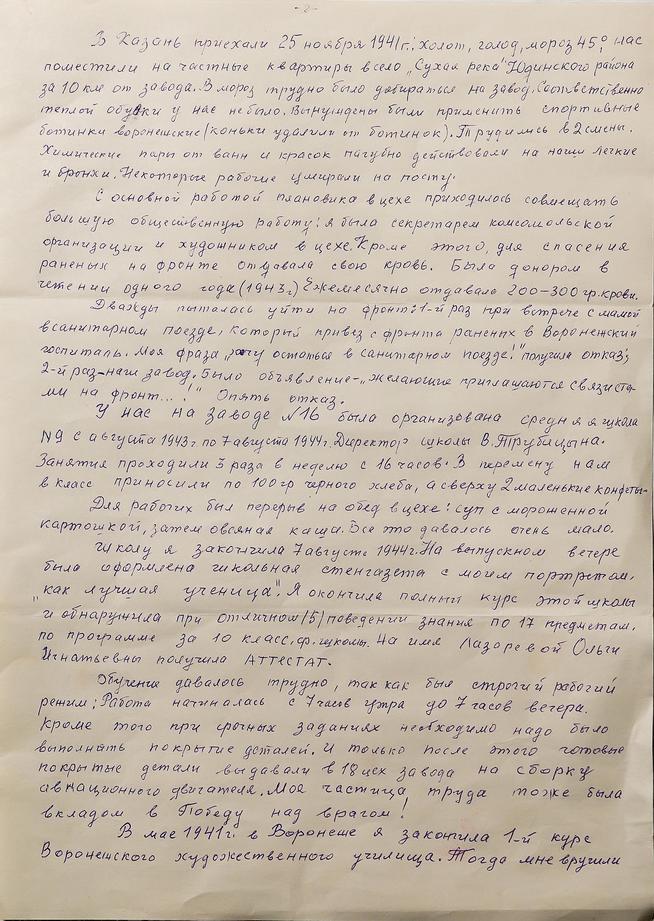 -2-
В Казань приехали 25 ноября 1941г.: холод, голод, мороз 45°, нас
поместили на частные квартиры в село „Сухая река" Юдинского района
за 10 км от завода. В мороз трудно было добираться на завод. Соответственно
теплой обувки у нас не было. Вынуждены были применить спортивные
ботинки воронешские (коньки удалили от ботинок). Трудились в 2 смены.
Химические пары от ванн и красок пагубно действовали на наши легкие
и бронхи. Некоторые рабочие умирали на посту.
С основной работой плановика в цехе приходилось совмещать
большую общественную работу: я была секретарем комсомольской
организации и художником в цехе. Кроме этого, для спасения
раненых на фронте отдавала свою кровь. Была донором в
течении одного года (1943г.) Ежемесячно отдавала 200-300 гр. крови.
Дважды пыталась уйти на фронт: 1-й раз при встрече с мамой
в санитарном поезде, который привез с фронта раненых в Воронежский
госпиталь. Моя фраза „хочу остаться в санитарном поезде!" получила отказ;
2-й раз-наш завод. Было объявление-„желающие приглашаются связиста-
ми на фронт...!" Опять отказ.
У нас на заводе №16 была организована средняя школа
№9 с августа 1943г. по 7 августа 1944г. Директор школы В. Трубицына.
Занятия проходили 3 раза в неделю с 16 часов. В перемену нам
в класс приносили по 100 гр черного хлеба, а сверху 2 маленькие конфеты.
Для рабочих был перерыв на обед в цехе: суп с мороженной
картошкой, затем овсяная каша. Все это давалось очень мало.
Школу я закончила 7 августа 1944г. На выпускном вечере
была оформлена школьная стенгазета с моим портретом,
„как лучшая ученица". Я окончила полный курс этой школы
и обнаружила при отличном /5/ поведении знания по 17 предметам,
по программе за 10 класс. ср. школы. На имя Лазоревой Ольги
Игнатьевны получила АТТЕСТАТ.
Обучение давалось трудно, так как был строгий рабочий
режим: Работа начиналась с 7 часов утра до 7 часов вечера.
Кроме того при срочных заданиях необходимо надо было
выполнять покрытие деталей. И только после этого готовые
покрытые детали выдавали в 18 цех завода на сборку
авиационного двигателя. Моя частица труда тоже была
вкладом в Победу над врагом!
В мае 1941г. в Воронеше я закончила 1-й курс
Воронешского художественного училища. Тогда мне вручили